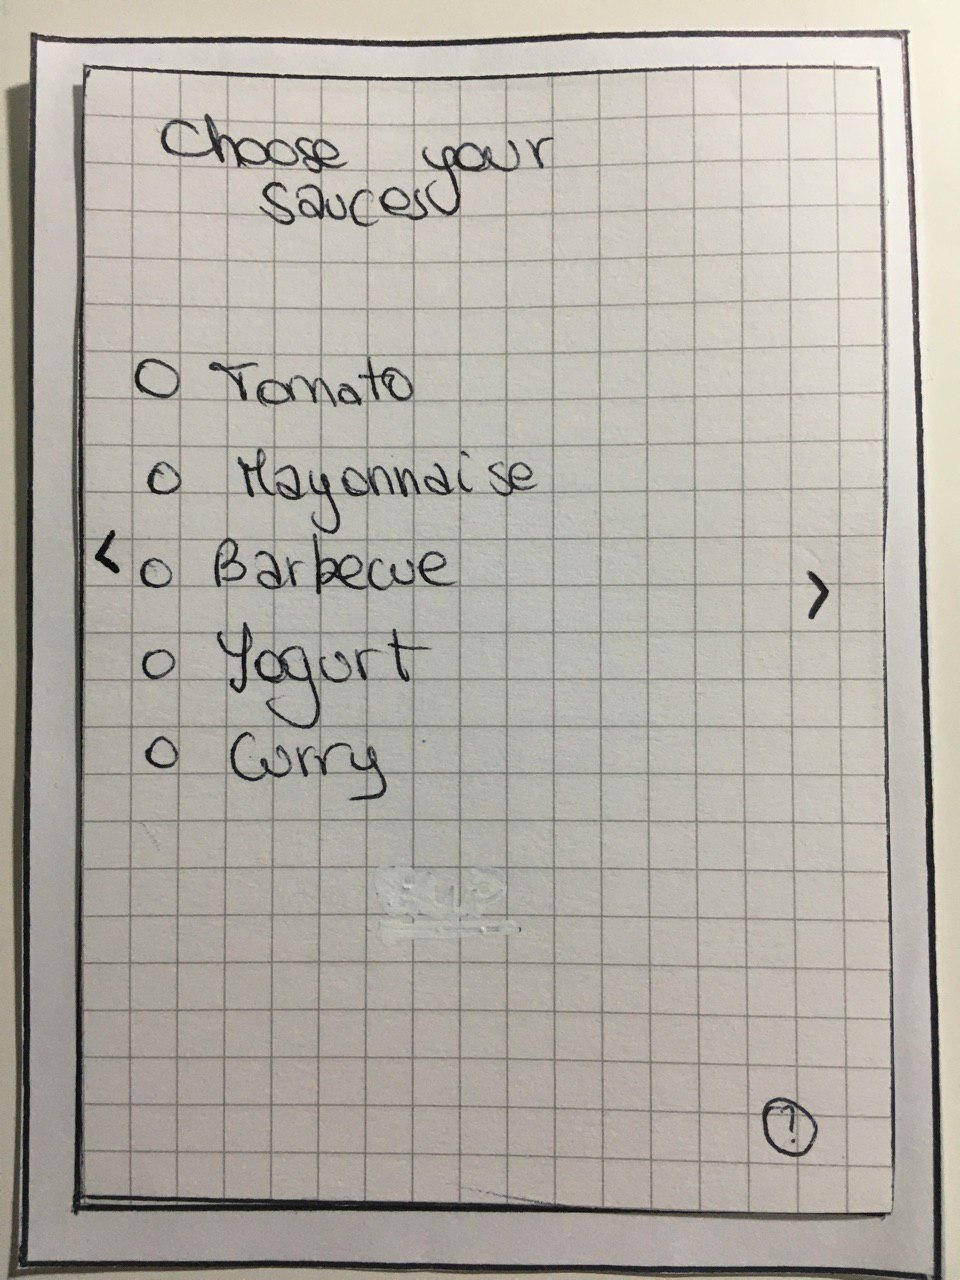 Choose your
sauces
O Tomato
O Mayonnaise
< O Barbecue
>
O Yogurt
O Curry
?